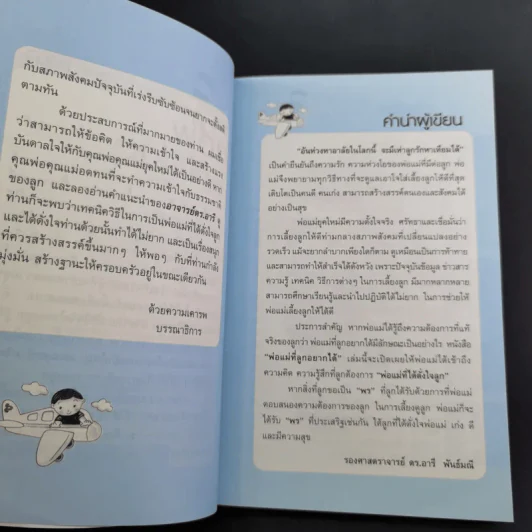 กับสภาพสังคมปัจจุบันที่เร่งรีบซับซ้อนจนยากจะตั้งสติ
ตามทัน
ด้วยประสบการณ์ที่มากมายของท่าน ผมเชื่อ
ว่าสามารถให้ข้อคิด ให้ความเข้าใจ และสร้างแรง
บันดาลใจให้กับคุณพ่อคุณแม่ยุคใหม่ได้เป็นอย่างดี หาก
คุณพ่อคุณแม่อดทนที่จะทำความเข้าใจกับธรรมชาติ
ของลูก และลองอ่านคำแนะนำของอาจารย์ดร.อารี
ท่านก็จะพบว่าเทคนิควิธีในการเป็นพ่อแม่ที่ได้ดั่งใจลูก
และได้ดั่งใจท่านด้วยนั้นทำได้ไม่ยาก และเป็นเรื่องสนุก
ที่ควรสร้างสรรค์ขึ้นมากๆ ให้พอๆ กับที่ท่านกำลัง
มุ่งมั่น สร้างฐานะให้ครอบครัวอยู่ในขณะเดียวกัน
ด้วยความเคารพ
บรรณาธิการ
คำนำผู้เขียน
"อันห่วงหาอาลัยในโลกนี้ จะมีเท่าลูกรักหาเทียมได้"
เป็นคำยืนยันถึงความรัก ความห่วงใยของพ่อแม่ที่มีต่อลูก พ่อ
แม่จึงพยายามทุกวิถีทางที่จะดูแลเอาใจใส่เลี้ยงลูกให้ดีที่สุด
เติบโตเป็นคนดี คนเก่ง สามารถสร้างสรรค์ตนเองและสังคมได้
อย่างเป็นสุข
พ่อแม่ยุคใหม่มีความตั้งใจจริง ศรัทธาและเชื่อมั่นว่า
การเลี้ยงลูกให้ดีท่ามกลางสภาพสังคมที่เปลี่ยนแปลงอย่าง
รวดเร็ว แม้จะยากลำบากเพียงใดก็ตาม ดูเหมือนเป็นการท้าทาย
และสามารถทำให้สำเร็จได้ดังหวัง เพราะปัจจุบันข้อมูล ข่าวสาร
ความรู้ เทคนิค วิธีการต่างๆ ในการเลี้ยงลูก มีมากหลากหลาย
สามารถศึกษาเรียนรู้และนำไปปฏิบัติได้ไม่ยาก ในการช่วยให้
พ่อแม่เลี้ยงลูกให้ได้ดี
ประการสำคัญ หากพ่อแม่ได้รู้ถึงความต้องการที่แท้
จริงของลูกว่า พ่อแม่ที่ลูกอยากได้มีลักษณะเป็นอย่างไร หนังสือ
"พ่อแม่ที่ลูกอยากได้" เล่มนี้จะเปิดเผยให้พ่อแม่ได้เข้าถึง
ความคิด ความรู้สึกที่ลูกต้องการ "พ่อแม่ที่ได้ดั่งใจลูก"
หากสิ่งที่ลูกขอเป็น "พร" ที่ลูกได้รับด้วยการที่พ่อแม่
ตอบสนองความต้องการของลูก ในการเลี้ยงดูลูก พ่อแม่ก็จะ
ได้รับ "พร" ที่ประเสริฐเช่นกัน ได้ลูกที่ได้ดั่งใจพ่อแม่ เก่ง ดี
และมีความสุข
รองศาสตราจารย์ ดร.อารี พันธ์มณี